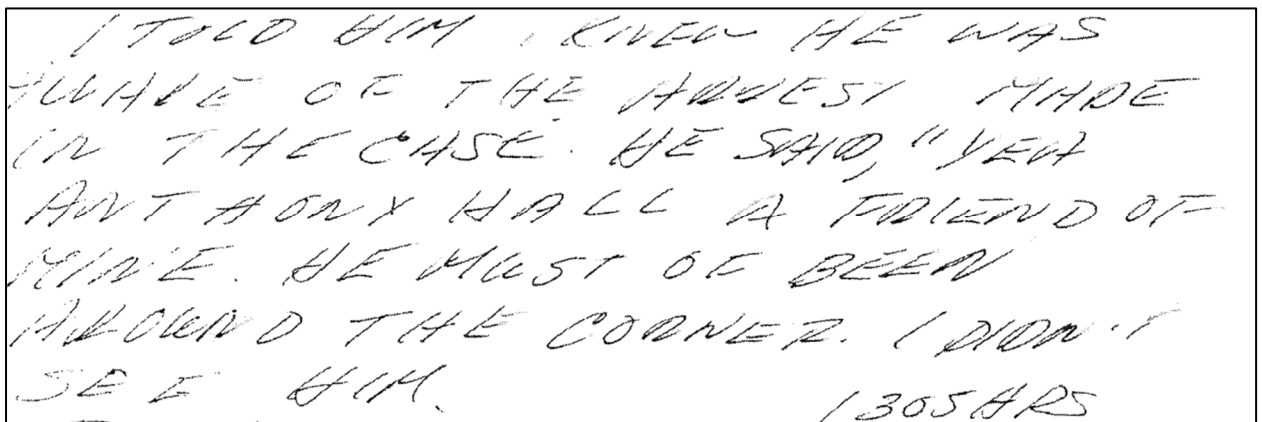 I TOLD HIM I KNEW HE WAS
AWARE OF THE ARREST MADE
IN THE CASE. HE SAID, "YEA
ANTHONY HALL A FRIEND OF
MINE. HE MUST OF BEEN
AROUND THE CORNER. I DIDN'T
SEE HIM.
1305 HRS